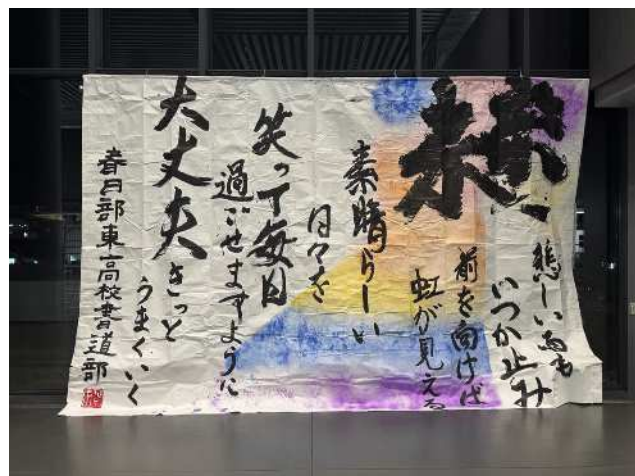 悲しい雨も
いつか止み
前を向けば
虹が見える
素晴らしい
日々を
笑って毎日
過ごせますように
大丈夫きっと
うまくいく
春日部東高校書道部